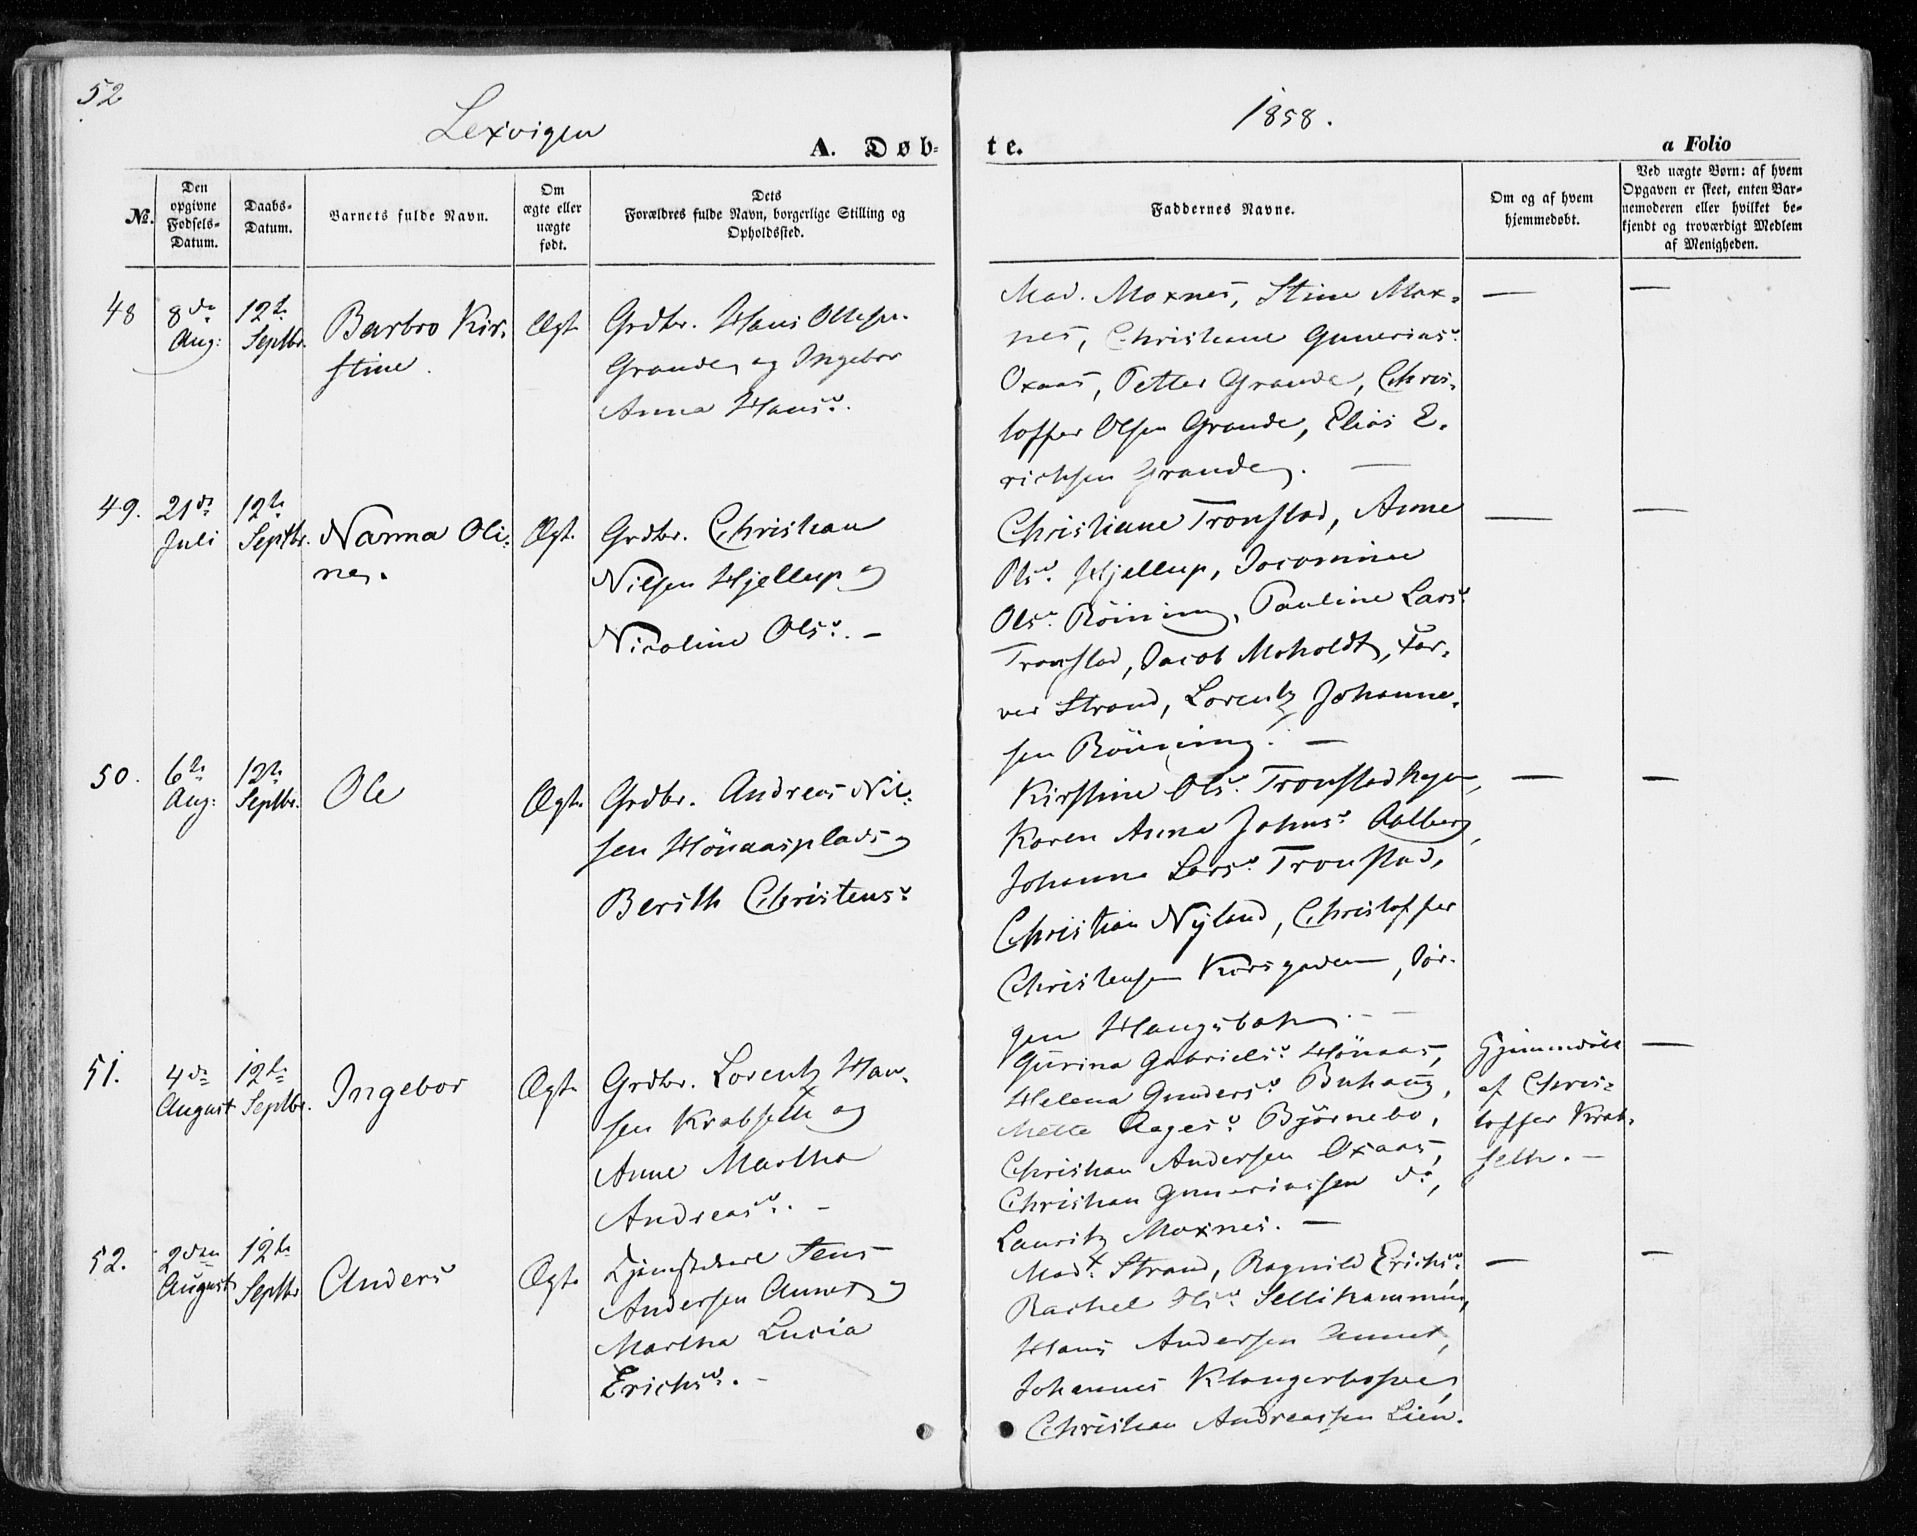 52
Lexvigen
1858.
A. Døb-
te.
a Folio
№.
Den
opgivne
Fødsels-
Datum.
Daabs-
Datum.
Barnets fulde Navn.
Om
ægte eller
uægte
født.
Dets
Forældres fulde Navn, borgerlige Stilling og
Opholdssted.
Faddernes Navne.
Om og af hvem
hjemmedøbt.
Ved uægte Børn: af hvem
Opgaven er skeet, enten Bar-
nemoderen eller hvilket be-
kjendt og troværdigt Medlem
af Menigheden.
48
8de
Aug:
12te
Septbr.
Barbro Kir-
stine.
Ægt
Grdbr. Hans Ollesen
Grande og Ingebor
Anna Hansd.
Mad. Moxnes, Stine Mox-
nes, Christiane Gunneriasd.
Oxaas, Petter Grande, Chris-
toffer Olsen Grande, Elias E-
richsen Grande. —
—
—
49.
21de
Juli
12te
Septbr.
Nanna Oli-
ne.
Ægt.
Grdbr. Christian
Nilsen Hjellup og
Nicoline Olsd. –
Christiane Tronstad, Anne
Olsd. Hjellup, Jocomine
Olsd. Röining, Pauline Larsd.
Tronstad, Jacob Moholdt, Far-
ver Strand, Lorentz Johanne-
sen Röining. —
—
—
50.
6te
Aug:
12te
Septbr.
Ole
Ægt.
Grdbr. Andreas Nil-
sen Hönaasplads og
Berith Christensd.
Kirstine Olsd. Tronstad
Karen Anna Johnsd. Aalberg,
Johanna Larsd. Tronstad,
Christian Nyland, Christoffer
Christensen, Jör-
gen —
—
—
51.
4de
August
12te
Septbr.
Ingebor
Ægt.
Grdbr. Lorentz Han-
sen Krabseth og
Anne Martha
Andreasd. –
Gurina Gabrielsd. Hönaas,
Helena Gundersd. Buhaug,
Mette Aagesd. Björnebo,
Christian Andersen Oxaas,
Christian Gunneriassen do,
Lauritz Moxnes. —
Hjemmedöbt
af Chris-
toffer Krab-
seth. –
—
52.
2den
August
12te
Septbr
Anders
Ægt.
Jens
Andersen Aunet og
Martha Lucia
Erichsd. –
Madm. Strand, Ragnild Erichsd.
Rachel Olsd. Sellikammen,
Hans Andersen Aunet,
Johannes
Christian Andreassen Lien.
—
—